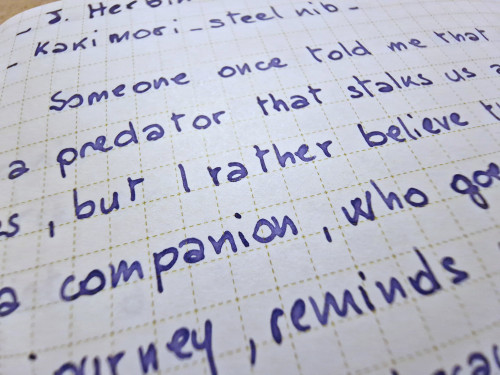 - J. Herbin
- Kakimori - steel nib -
Someone once told me that
a predator that stalks us
, but I rather believe
a companion, who
journey, reminds